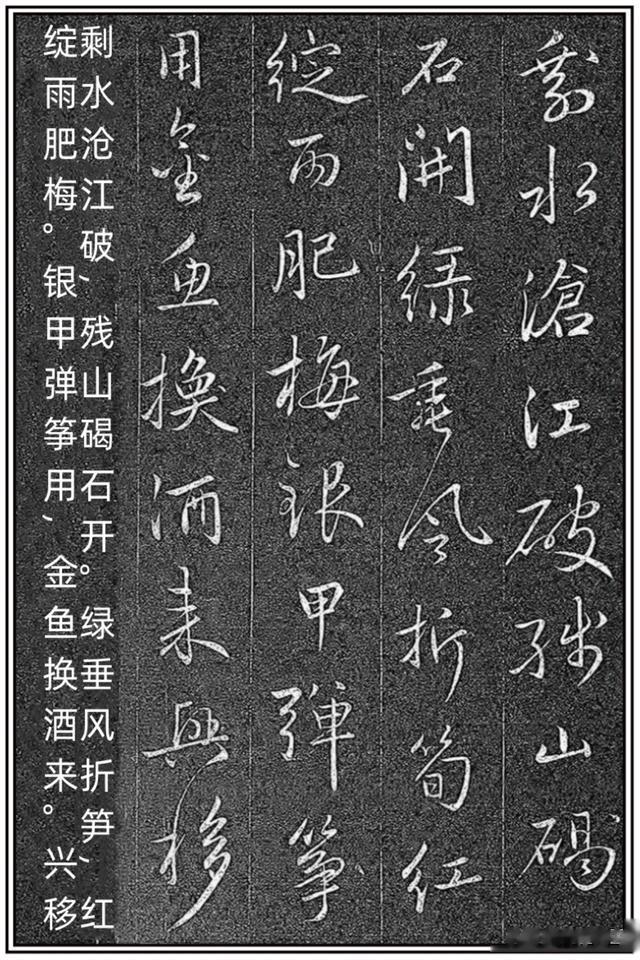 剩水滄江破殘山碣
石開綠垂風折筍紅
綻雨肥梅銀甲彈箏
用金魚換酒來興移
剩水沧江破，残山碣石开。绿垂风折笋，红
绽雨肥梅。银甲弹筝用，金鱼换酒来。兴移